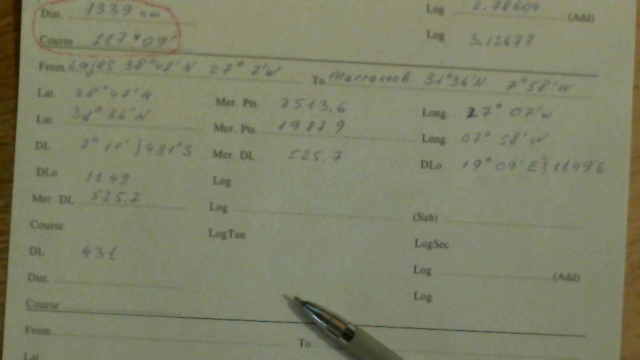 Dist. 1339 nm Log 2.78604 (Add)
Course 117° 09' Log 3.12677
From Lajes 38°47'N 27° 7'W To Marrakech 31°36'N 7°58'W
Lat. 38° 47' N Mer. Pts. 2513.6 Long. 27° 07'W
Lat. 31° 36'N Mer. Pts. 1987.9 Long. 07° 58' W
DL 7° 11' } 431'S Mer. DL 525.7 DLo 19° 09' E } 1149'E
DLo 1149 Log
Mer. DL 525.7 Log (Sub)
Course LogTan LogSec
DL 431 Log (Add)
Dist. Log
Course
From To
Lat.